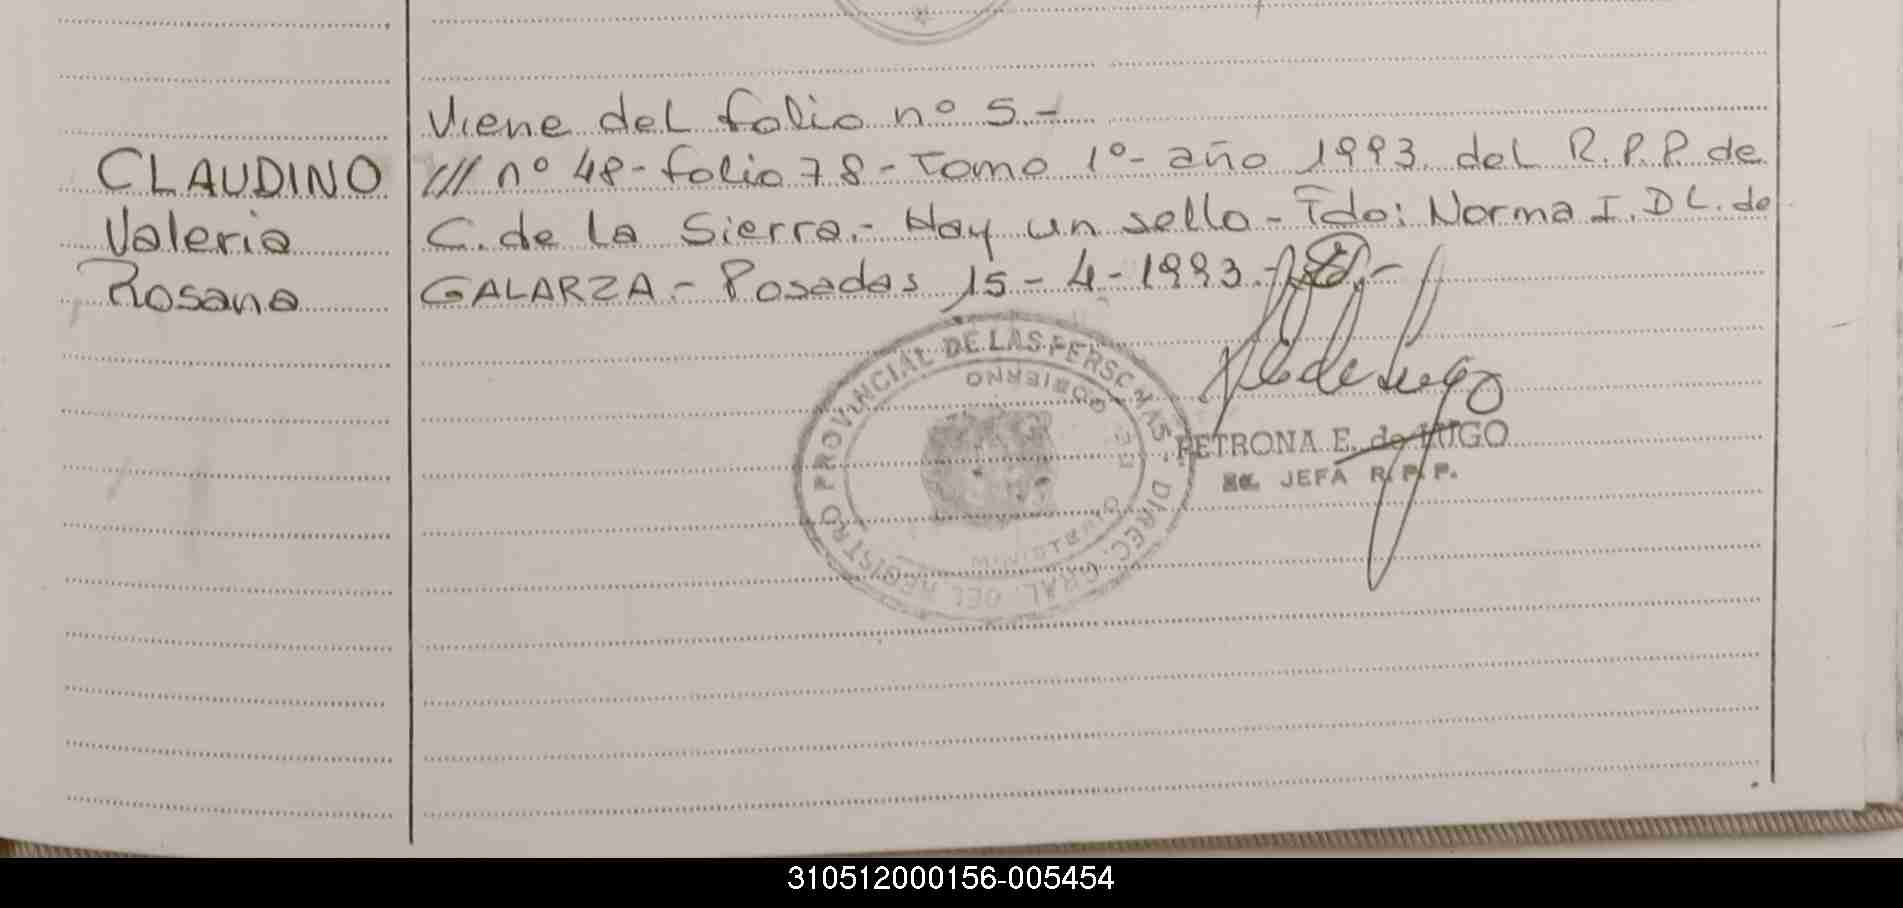 Viene del folio nº 5.-
CLAUDINO
Valeria
Rosana
/// nº 48 - folio 78 - Tomo 1º - año 1993. del R.P.P. de
C. de la Sierra.- Hay un sello - Fdo: Norma I. D L. de
GALARZA.- Posadas 15 - 4 - 1993.-
DIREC. GRAL. DEL REGISTRO PROVINCIAL DE LAS PERSONAS
MINISTERIO DE GOBIERNO
PETRONA E. de LUGO
JEFA R.P.P.
310512000156-005454